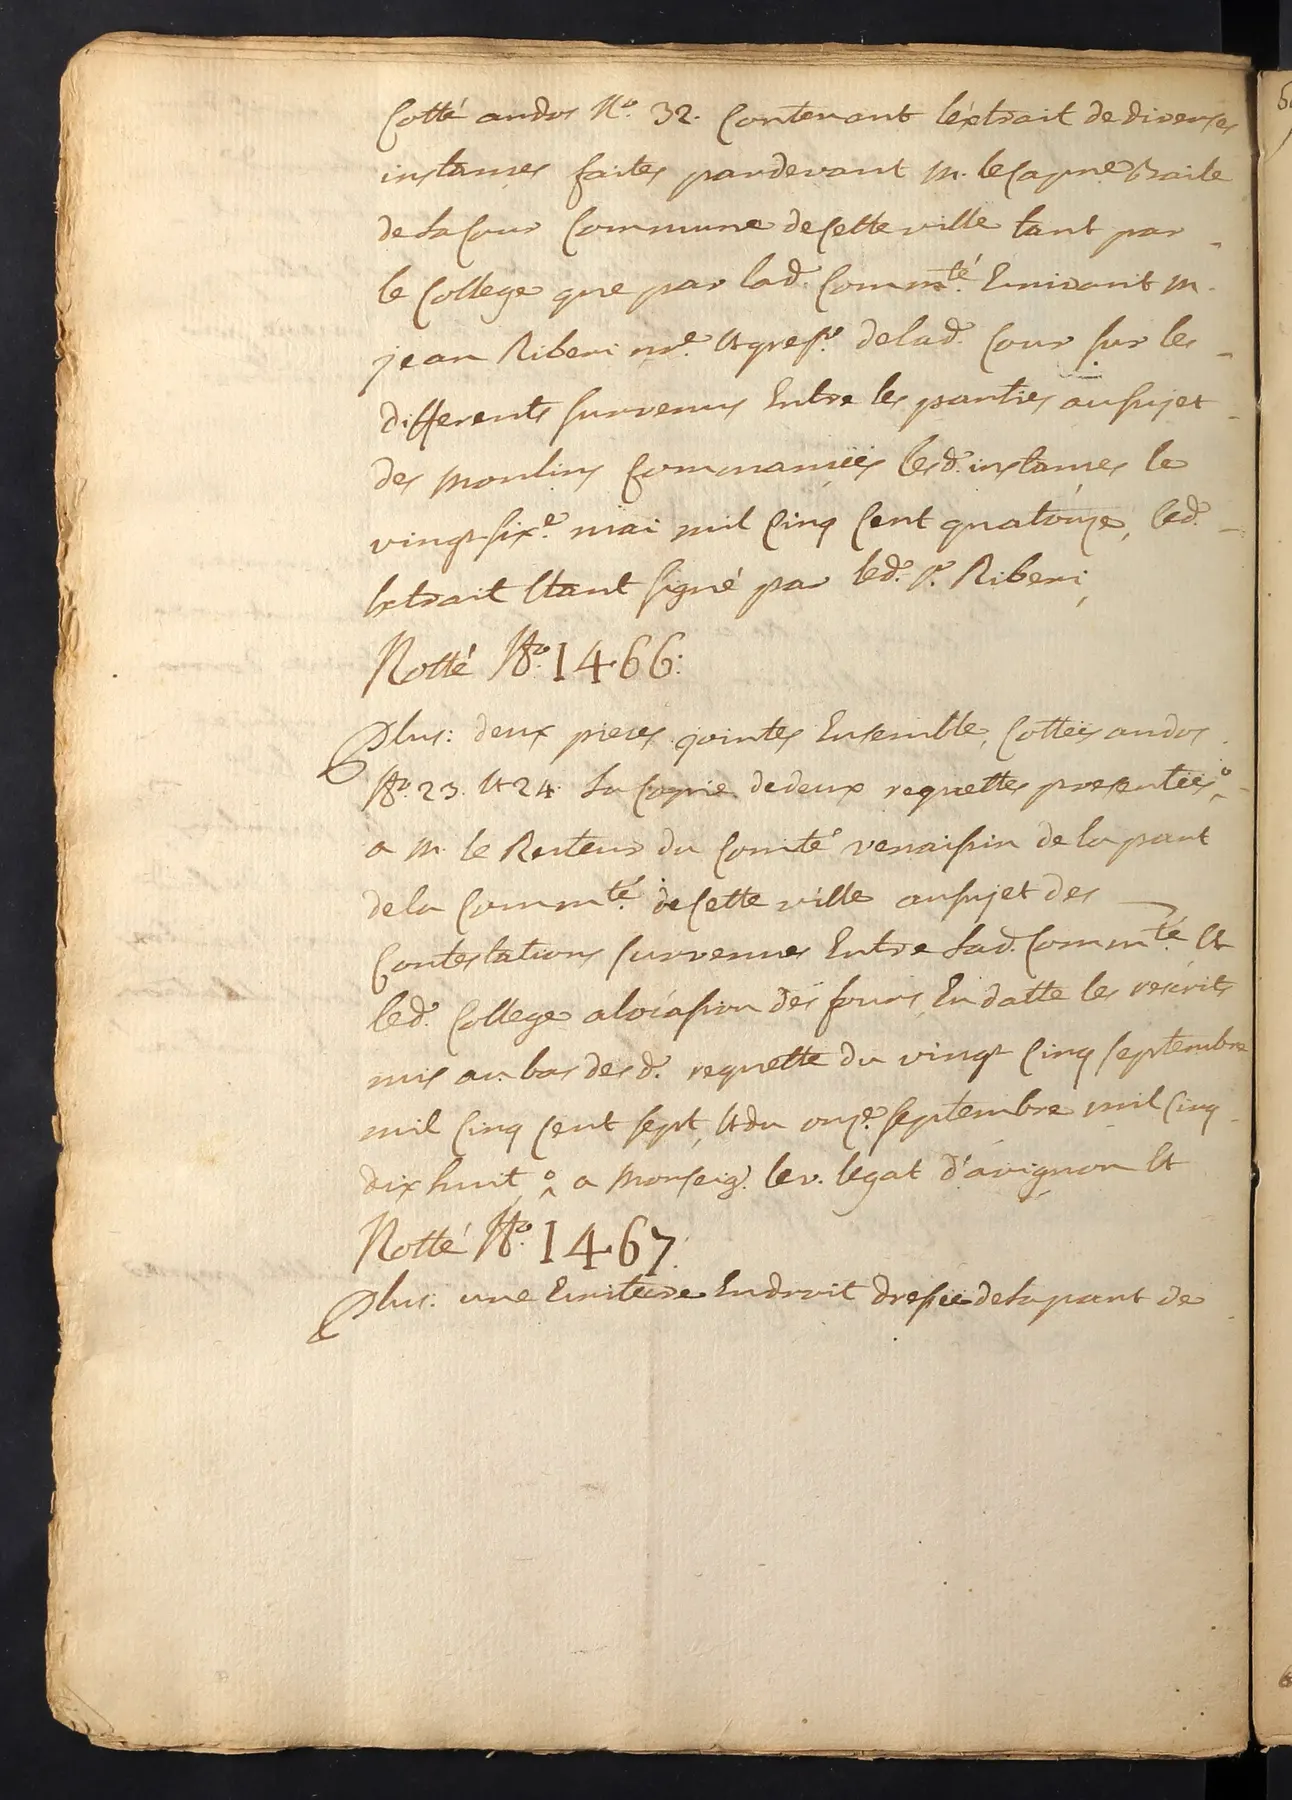 Cotté au dos N.º 32. Contenant l'extrait de diverses
instances faites pardevant M. le Capne Baile
de la Cour Commune de cette ville tant par
le College que par lad. Comm.té Ecrivant M.
jean Riberi nre. et gref.r de lad. Cour sur les
differents survenus Entre les parties au sujet
des moulins Commancéés lesd. instances le
vingt six.e mai mil Cinq Cent quatorze, led.
Extrait Etant signé par led. S.r Riberi,
Notté N.º 1466:
Plus: deux pieces jointes Ensemble, Cottéés au dos
N.º 23. et 24. La Copie de deux requettes presentéés
a M. le Recteur du Comté venaissin de la part
de la Comm.té de Cette ville au sujet des
Contestations survenues Entre lad. Comm.té et
led. College a l'ocasion des fours, En datte les rescrits
mis au bas desd. requette du vingt Cinq septembre
mil Cinq Cent sept, et du onz.e septembre mil Cinq
dix huit, a Monseig.r le v. legat d'avignon et
Notté N.º 1467.
Plus: une Ecriture En droit dresséé de la part de